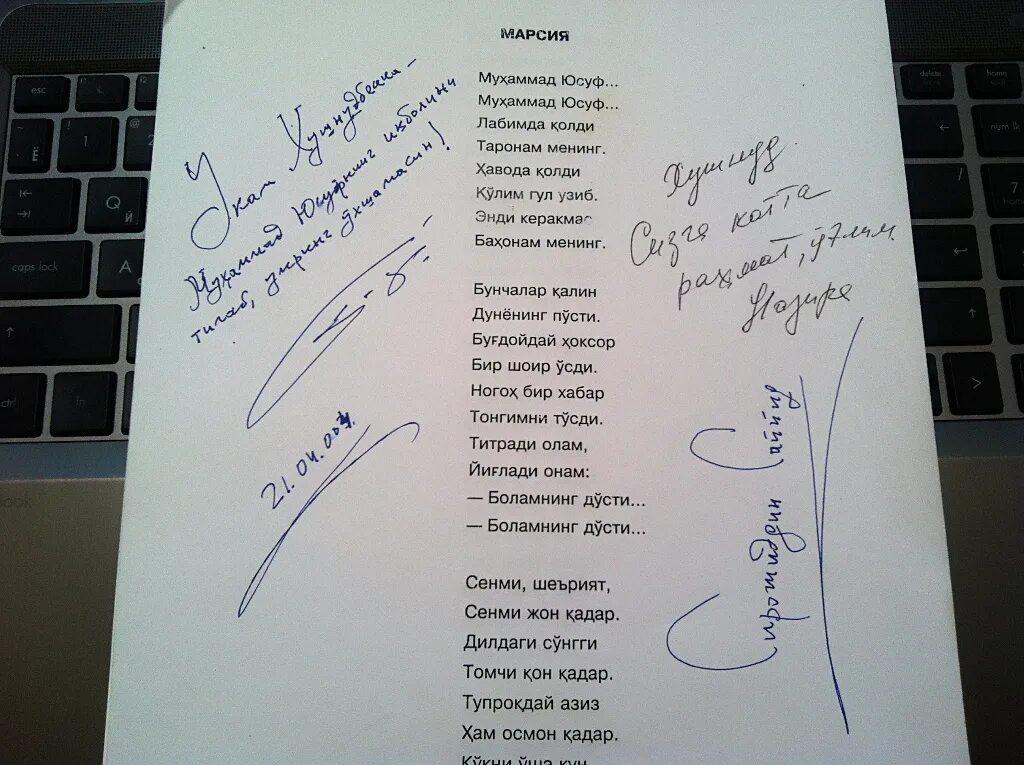 МАРСИЯ
Муҳаммад Юсуф...
Муҳаммад Юсуф...
Лабимда қолди
Таронам менинг.
Ҳавода қолди
Қўлим гул узиб.
Энди керакмас
Баҳонам менинг.
Бунчалар қалин
Дунёнинг пўсти.
Буғдойдай ҳоксор
Бир шоир ўсди.
Ногоҳ бир хабар
Тонгимни тўсди.
Титради олам,
Йиғлади онам:
— Боламнинг дўсти...
— Боламнинг дўсти...
Сенми, шеърият,
Сенми жон қадар.
Дилдаги сўнгги
Томчи қон қадар.
Тупроқдай азиз
Ҳам осмон қадар.
Кўкни ўша кун
Укам Хушнудбекка –
Муҳаммад Юсуфнинг иқболини
тилаб, умринг ўхшамасин!
21.04.004
Хушнуд
Сизга катта
раҳмат, ўғлим.
Назира
Сирожиддин
esc
1
Ё
Q
Й
caps lock
A
ctrl
delete
home
num lk
7
home
4
1
end